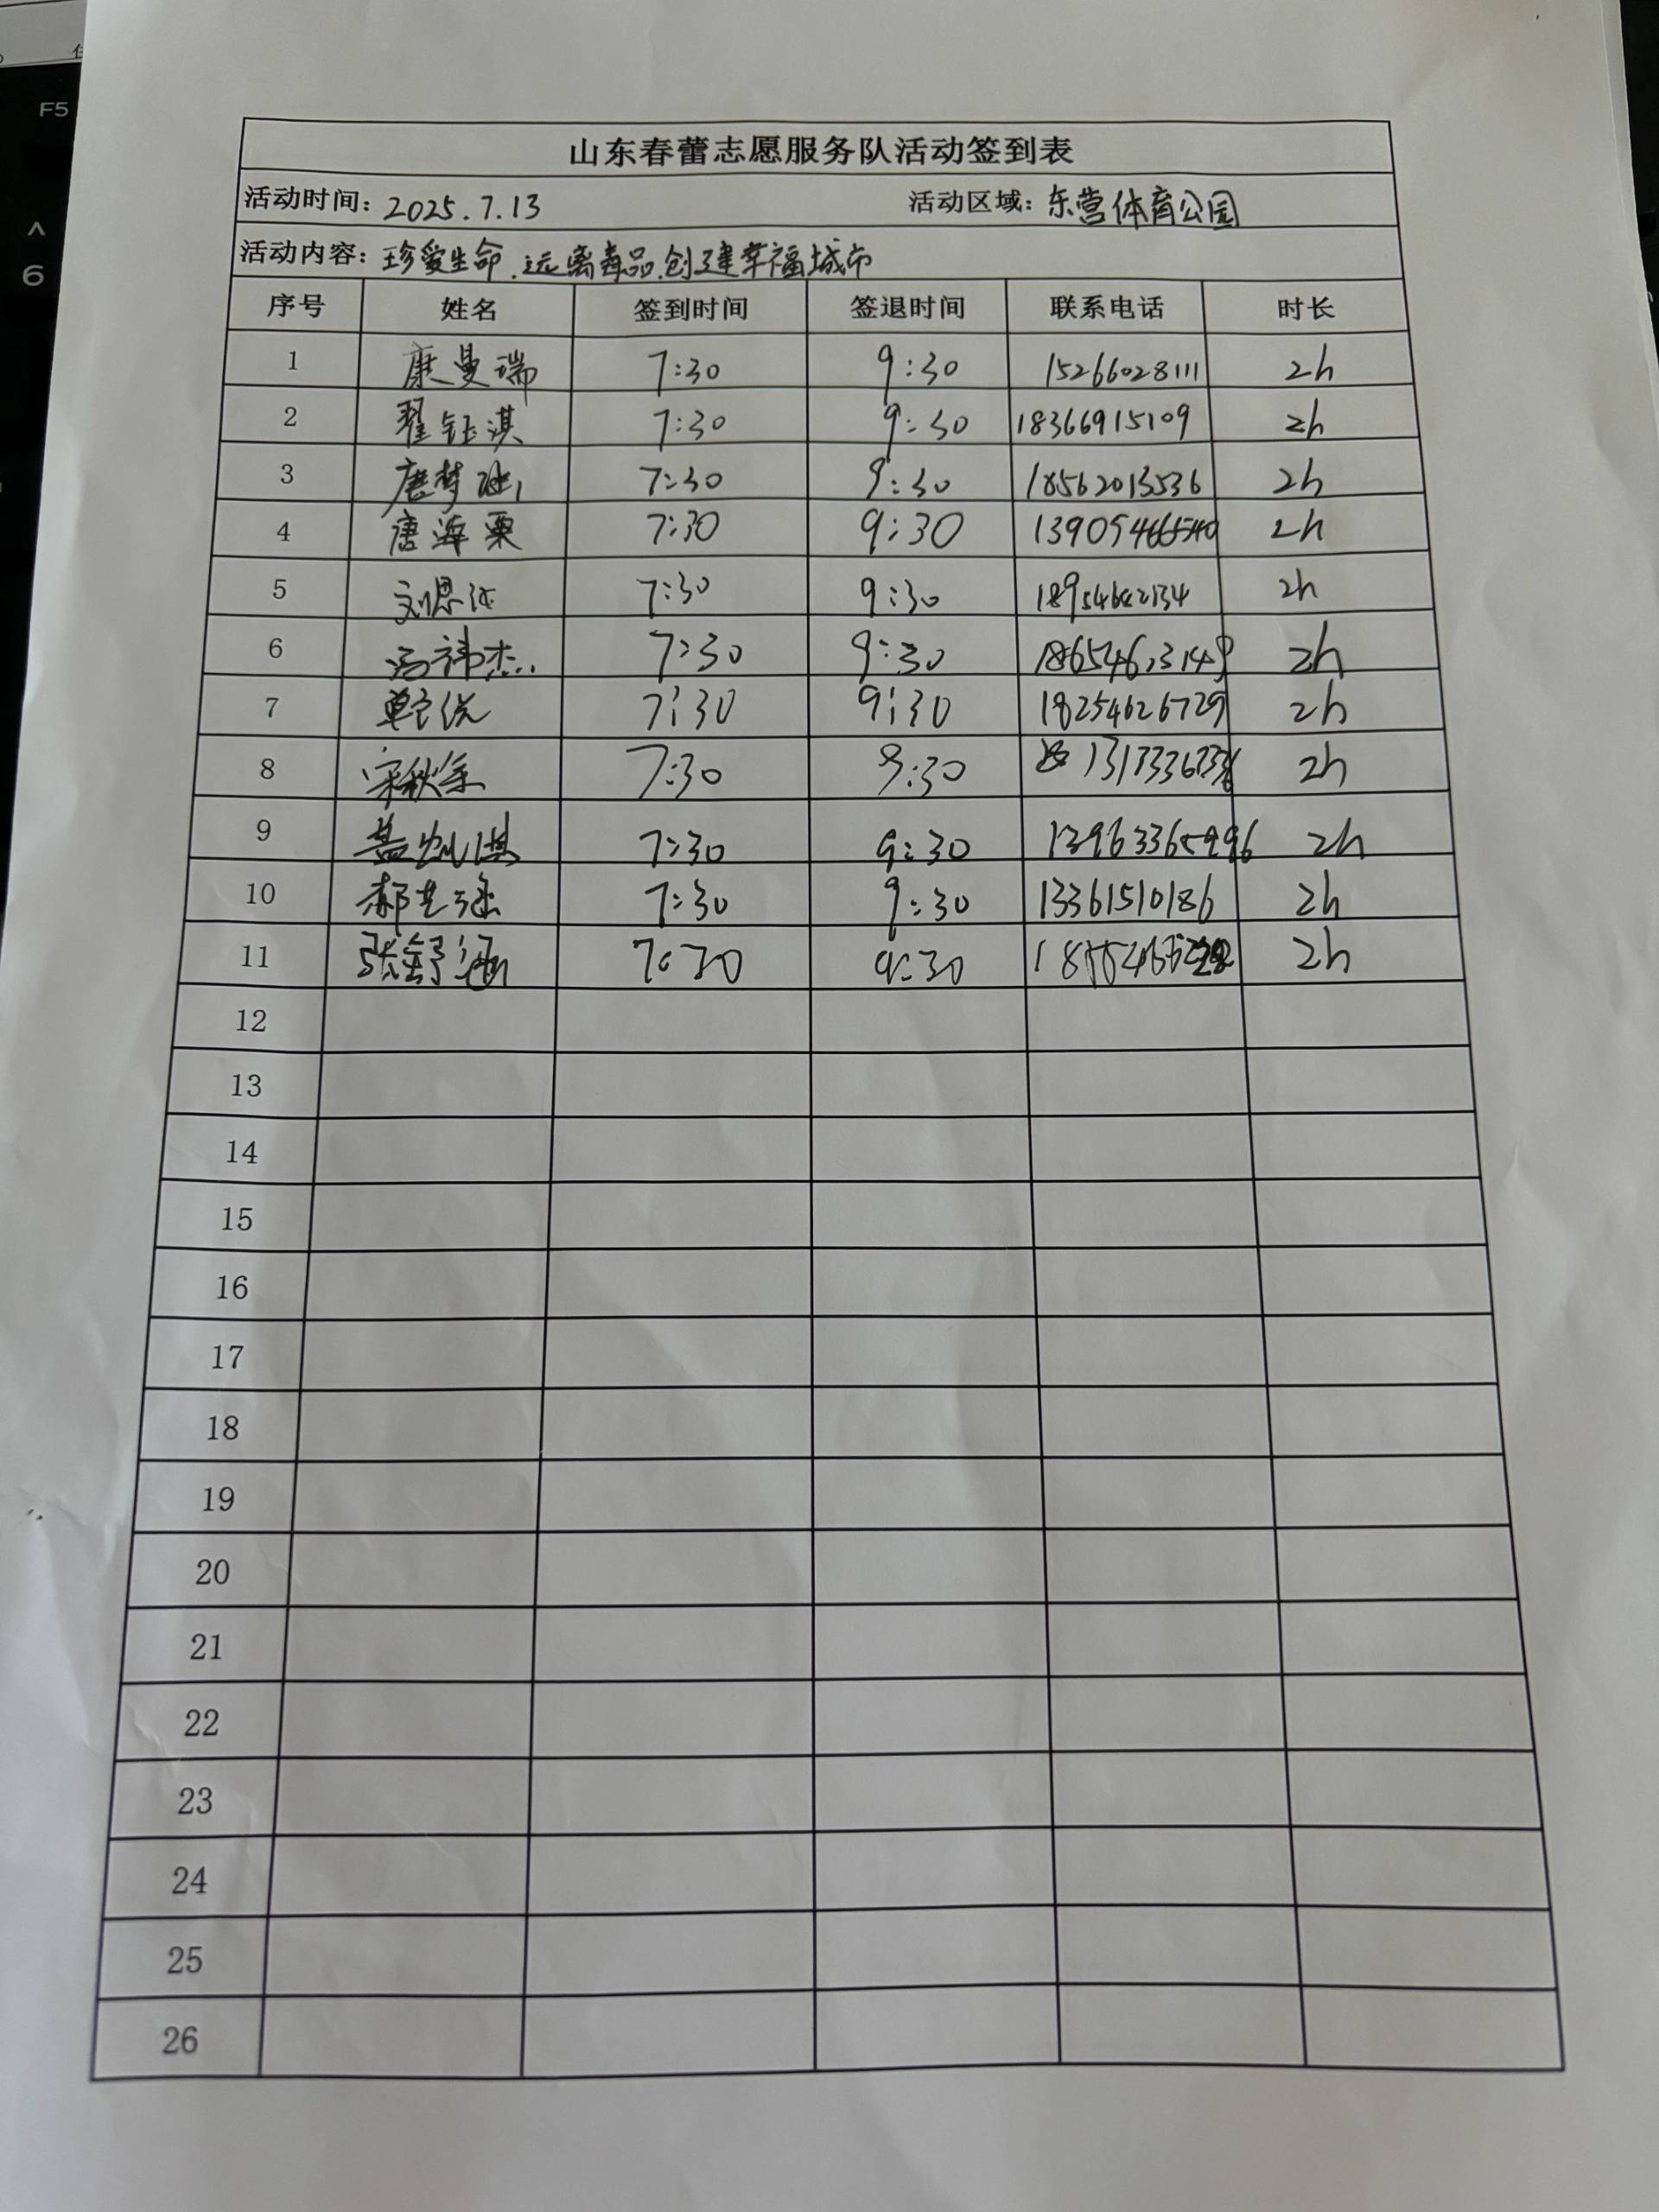 F5
6
山东春蕾志愿服务队活动签到表
活动时间：2025.7.13 活动区域：东营体育公园
活动内容：珍爱生命.远离毒品.创建幸福城市
序号 姓名 签到时间 签退时间 联系电话 时长
1 康曼瑞 7:30 9:30 15266028111 2h
2 翟钰淇 7:30 9:30 18366915109 2h
3 唐梦 7:30 9:30 18562013536 2h
4 唐海粟 7:30 9:30 2h
5 刘思 7:30 9:30 2h
6 冯祎杰 7:30 9:30 2h
7 7:30 9:30 18254626729 2h
8 宋秋 7:30 9:30 2h
9 7:30 9:30 2h
10 郝艺涵 7:30 9:30 13361510186 2h
11 张舒涵 7:30 9:30 2h
12
13
14
15
16
17
18
19
20
21
22
23
24
25
26